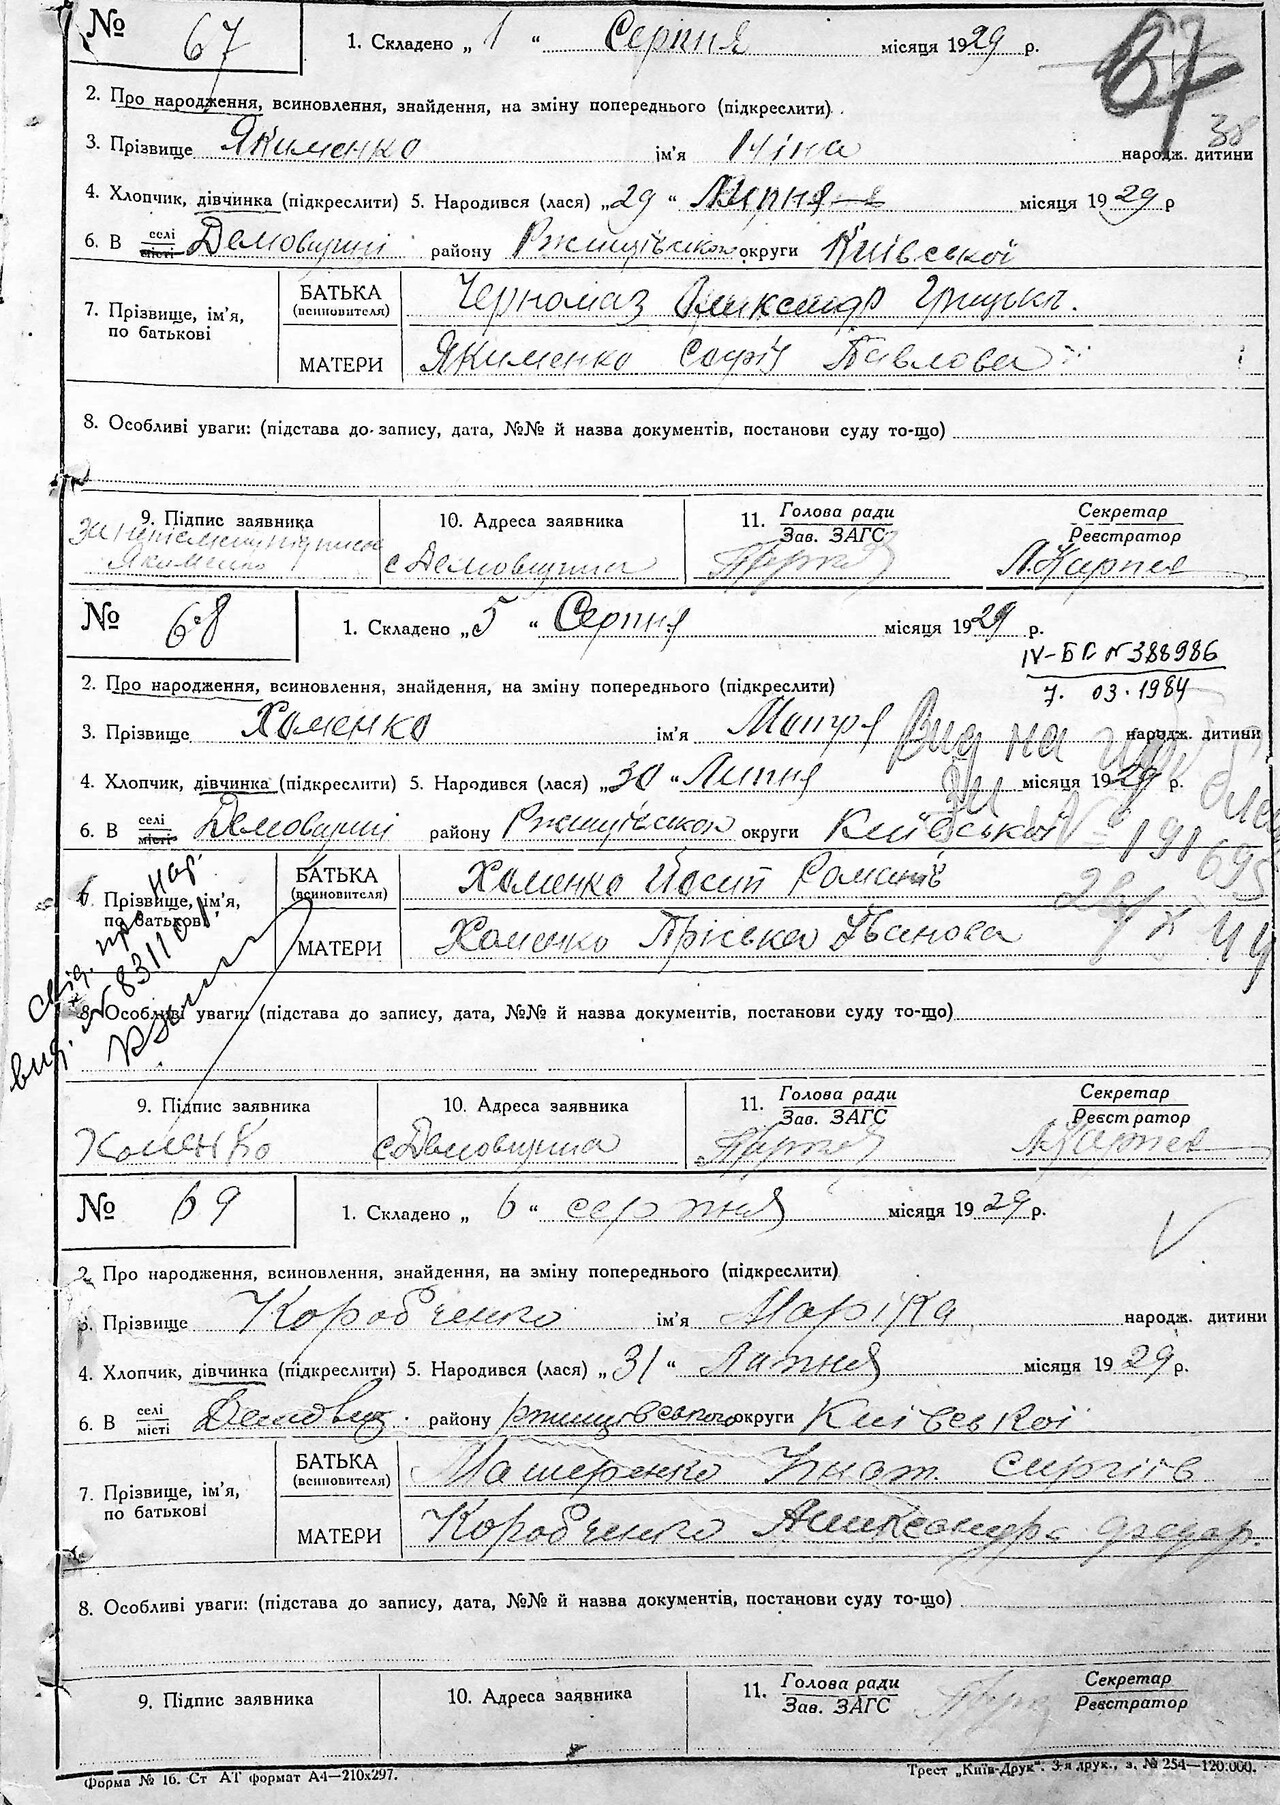 № 67 1. Складено „ 1 “ Серпня місяця 1929 р. 67
38
2. Про народження, всиновлення, знайдення, на зміну попереднього (підкреслити)
3. Прізвище Якименко ім'я Ніна народж. дитини
4. Хлопчик, дівчинка (підкреслити) 5. Народився (лася) „29“ Липня місяця 1929 р
6. В селі місті Демовщині району Ржищівськом округи Київської
7. Прізвище, ім'я, по батькові
БАТЬКА (всиновителя) Черномаз Олександр
МАТЕРИ Якименко Софія Павлова
8. Особливі уваги: (підстава до запису, дата, №№ й назва документів, постанови суду то-що)
9. Підпис заявника 10. Адреса заявника 11. Голова ради Зав. ЗАГС Секретар Реєстратор
Якименко с Демовщина
№ 68 1. Складено „5“ Серпня місяця 1929 р.
IV-БК № 388986
7. 03. 1984
2. Про народження, всиновлення, знайдення, на зміну попереднього (підкреслити)
3. Прізвище Хоменко ім'я Мотря народж. дитини
Вид на
4. Хлопчик, дівчинка (підкреслити) 5. Народився (лася) „30“ Липня місяця 1929 р.
6. В селі місті Демовщині району Ржищівськом округи Київської
№ 191695
7. Прізвище, ім'я, по батькові
БАТЬКА (всиновителя) Хоменко Йосип Романів
МАТЕРИ Хоменко Пріська Іванова
свід. про нар.
вид. № 831101
8. Особливі уваги: (підстава до запису, дата, №№ й назва документів, постанови суду то-що)
9. Підпис заявника 10. Адреса заявника 11. Голова ради Зав. ЗАГС Секретар Реєстратор
Хоменко с Демовщина
№ 69 1. Складено „ 6 “ серпня місяця 1929 р.
2. Про народження, всиновлення, знайдення, на зміну попереднього (підкреслити)
3. Прізвище Коробченко ім'я Марійка народж. дитини
4. Хлопчик, дівчинка (підкреслити) 5. Народився (лася) „31“ Липня місяця 1929 р.
6. В селі місті Демовщ. району Ржищівського округи Київської
7. Прізвище, ім'я, по батькові
БАТЬКА (всиновителя) Машеренко Ігнат Сиргіїв
МАТЕРИ Коробченко Федор.
8. Особливі уваги: (підстава до запису, дата, №№ й назва документів, постанови суду то-що)
9. Підпис заявника 10. Адреса заявника 11. Голова ради Зав. ЗАГС Секретар Реєстратор
Форма № 16. Ст АТ формат А4—210х297. Трест „Київ-Друк“. 3-я друк., з. № 254—120.000.